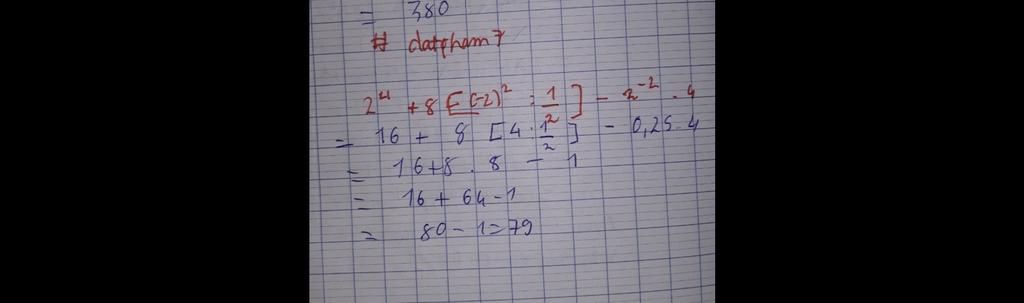 = 380
# datpham7
2⁴ + 8 [(-2)² : 1/2] - 2⁻² . 4
= 16 + 8 [4 : 1/2] - 0,25.4
= 16+8 . 8 - 1
= 16 + 64 - 1
= 80 - 1 = 79